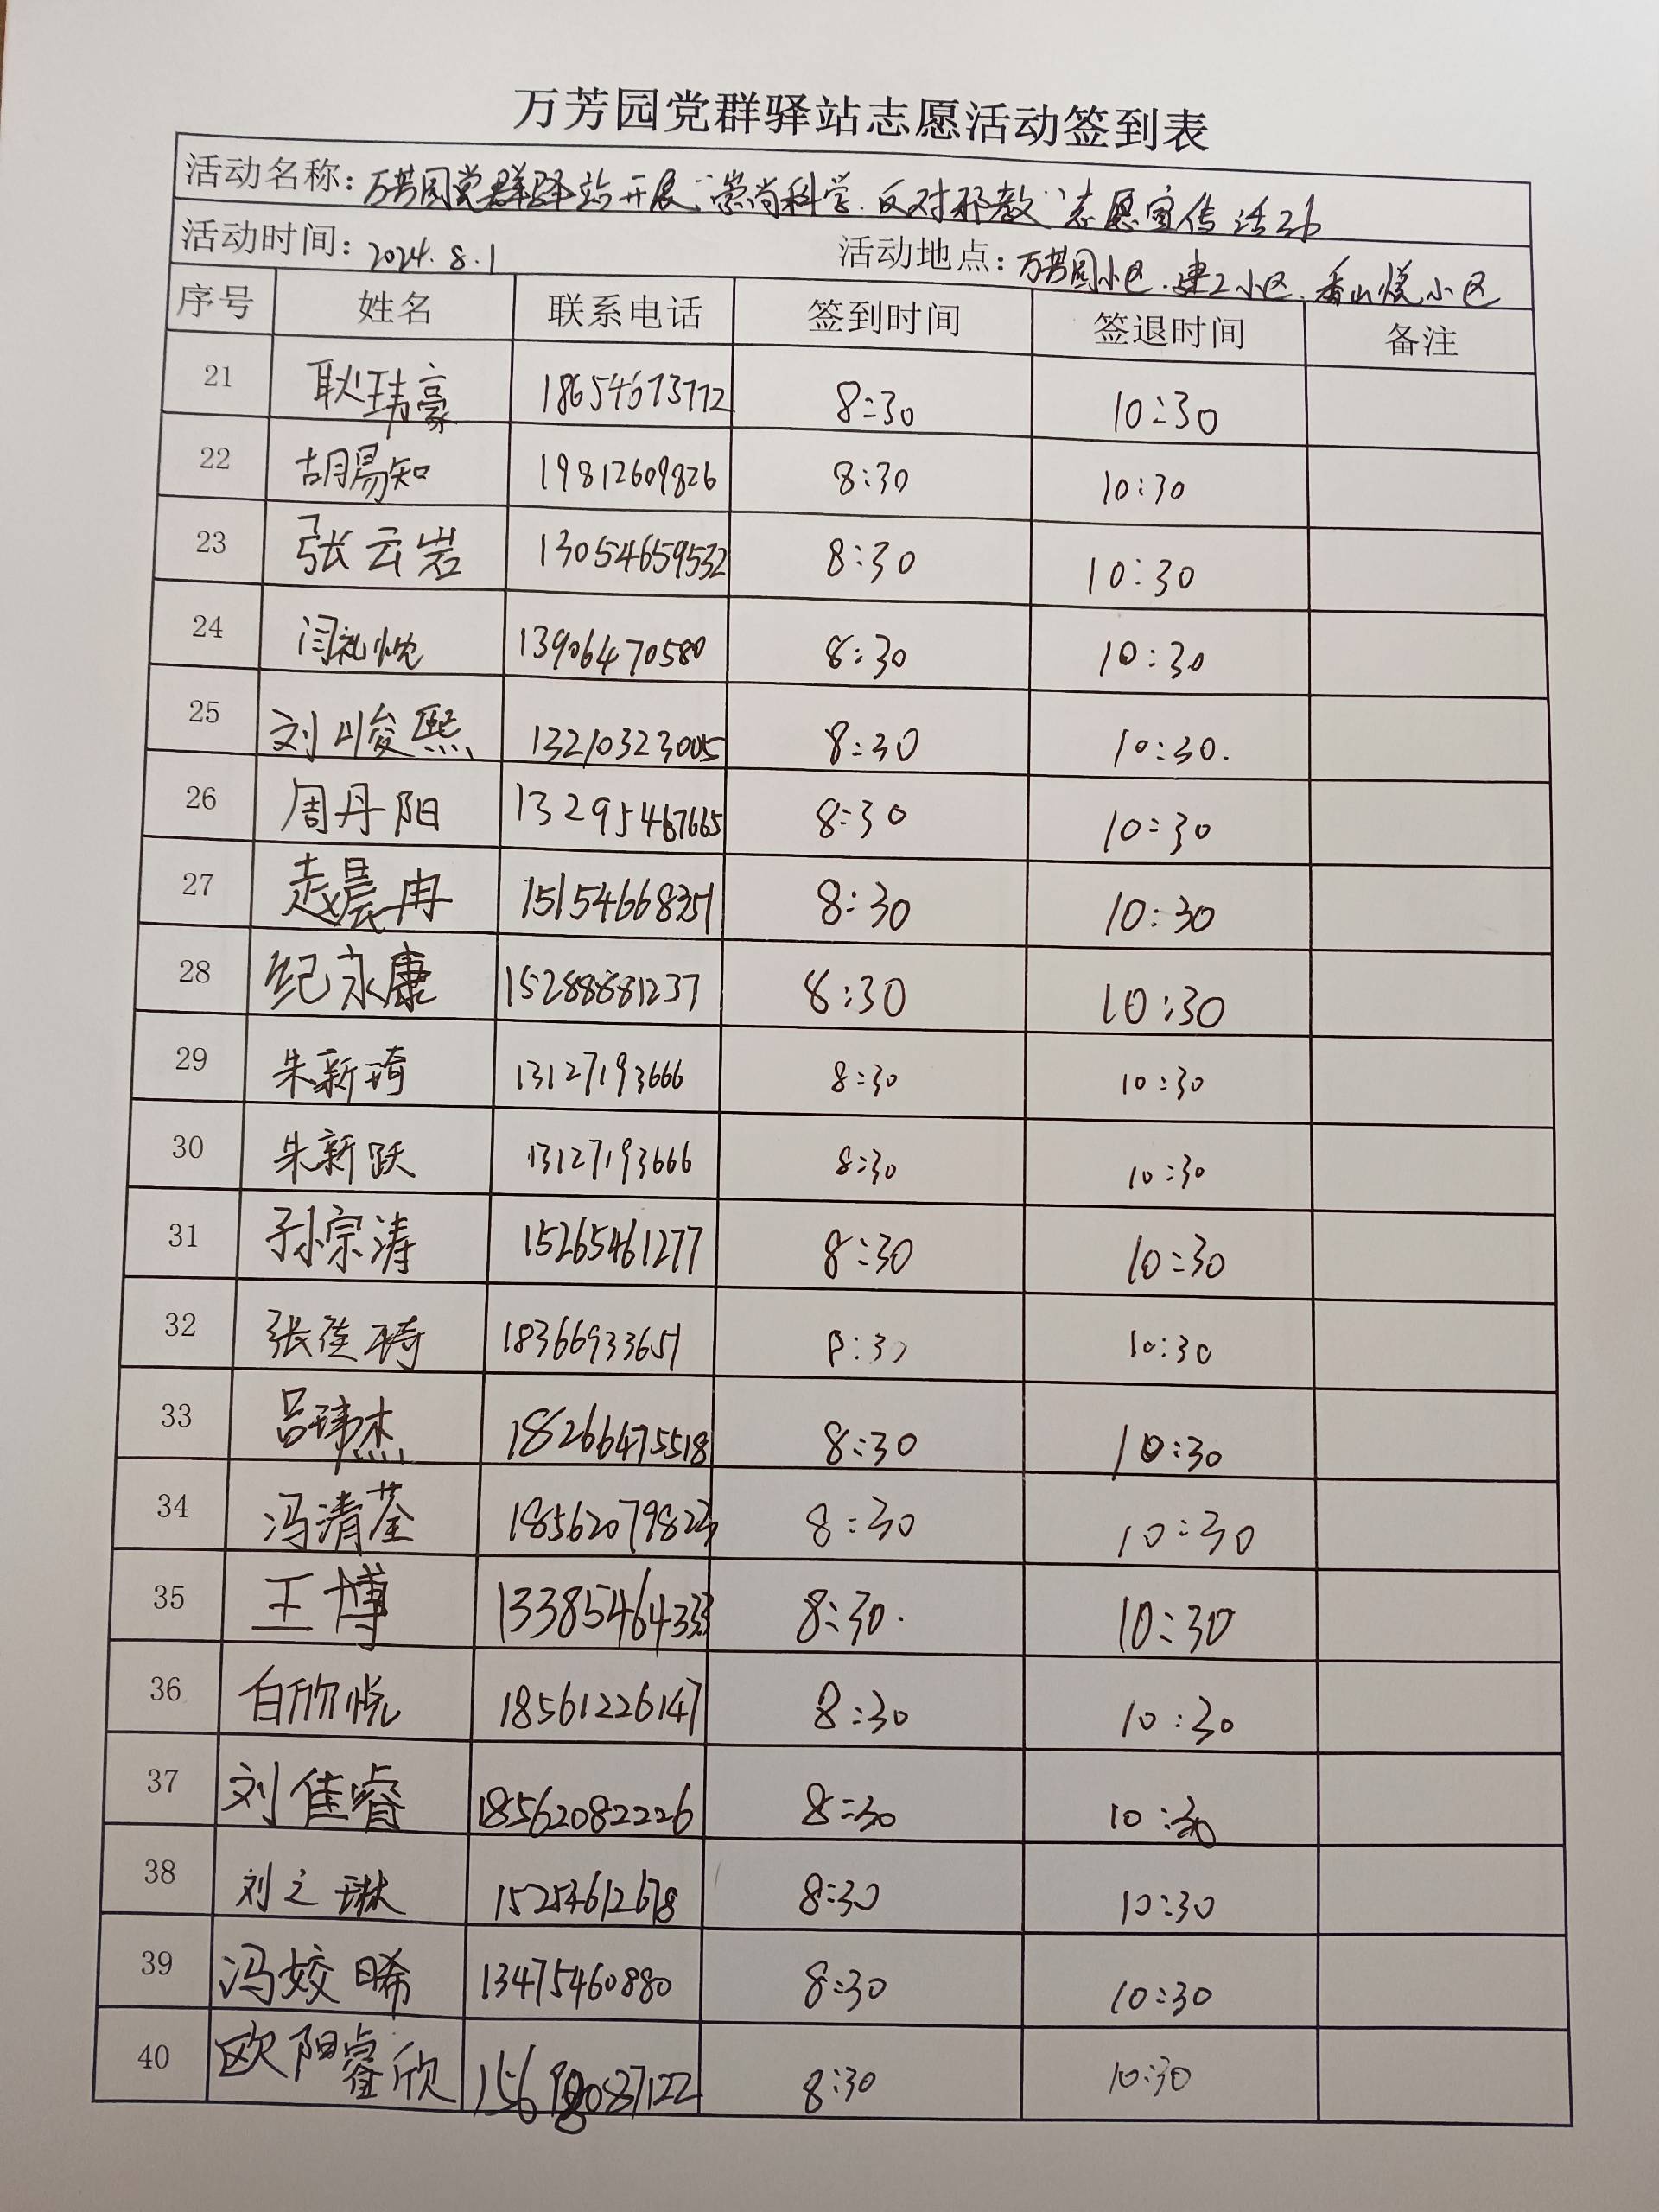 万芳园党群驿站志愿活动签到表
活动名称：万芳园党群驿站开展“崇尚科学、反对邪教”志愿宣传活动
活动时间：2024.8.1 活动地点：万芳园小区、建工小区、香山悦小区
序号 姓名 联系电话 签到时间 签退时间 备注
21 耿玮豪 18654673772 8:30 10:30
22 胡易知 19812609826 8:30 10:30
23 张云岩 13054659532 8:30 10:30
24 闫礼悦 13906470580 8:30 10:30
25 刘峻熙 13210323005 8:30 10:30.
26 周丹阳 13295467665 8:30 10:30
27 赵晨冉 15154668351 8:30 10:30
28 纪永康 15288881237 8:30 10:30
29 朱新琦 13127193666 8:30 10:30
30 朱新跃 13127193666 8:30 10:30
31 孙宗涛 15265461277 8:30 10:30
32 张佳琦 18366933651 8:30 10:30
33 吕玮杰 18266475518 8:30 10:30
34 冯清荃 8:30 10:30
35 王博 13385464333 8:30. 10:30
36 白欣悦 18561226147 8:30 10:30
37 刘佳睿 18562082226 8:30 10:30
38 刘之琳 15254612678 8:30 10:30
39 冯姣晞 13475460880 8:30 10:30
40 欧阳睿欣 8:30 10:30